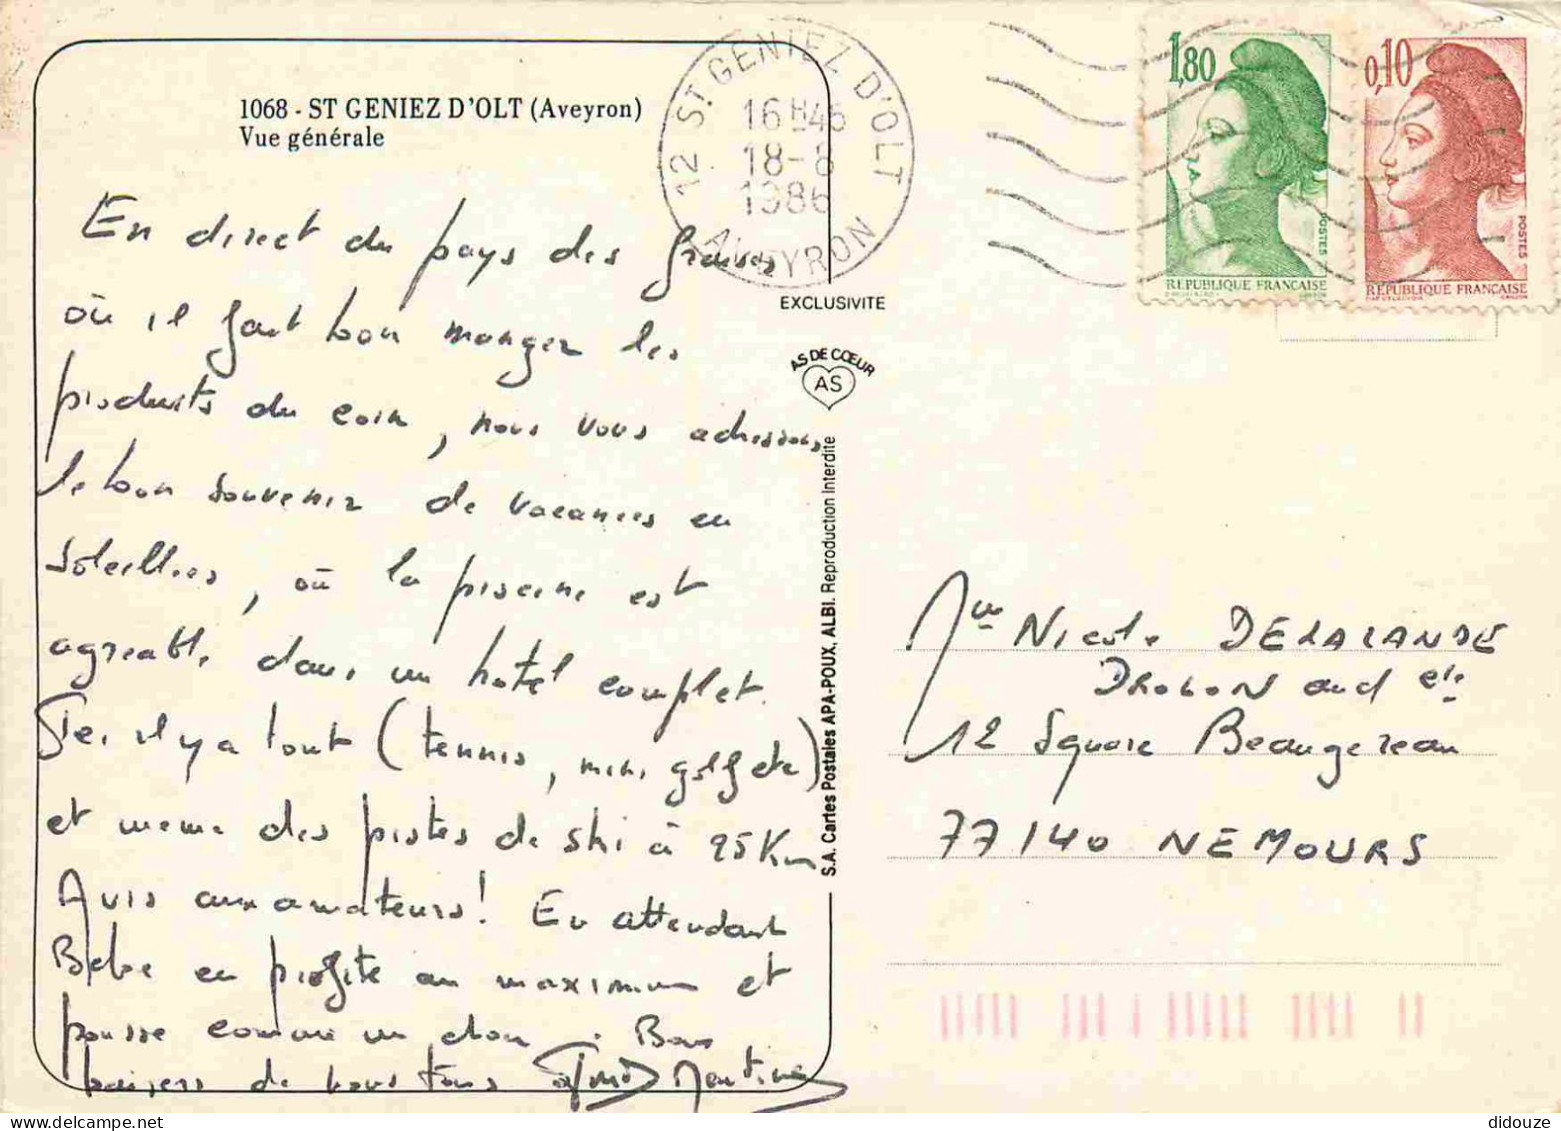 1068 - ST GENIEZ D'OLT (Aveyron)
Vue générale
12 ST GENIEZ D'OLT
16 H 45
18-8
1986
AVEYRON
1,80
POSTES
REPUBLIQUE FRANÇAISE
0,10
POSTES
REPUBLIQUE FRANÇAISE
EXCLUSIVITE
AS DE CŒUR
AS
S.A. Cartes Postales APA-POUX, ALBI. Reproduction Interdite
En direct du pays des fraises
où il fait bon manger les
produits du coin, nous vous adressons
le bon souvenir de vacances en
soleillées, où la piscine est
agreable dans un hotel complet.
Ici il y a tout (tennis, mini golf etc)
et meme des pistes de ski à 25 Km
Avis aux amateurs! En attendant
Bebe en profite au maximum et
pousse comme un chou. Bons
baisers de nous tous
Mme Nicole DELALANDE
DROLON and cie
12 Square Beaugereau
77140 NEMOURS
didouze